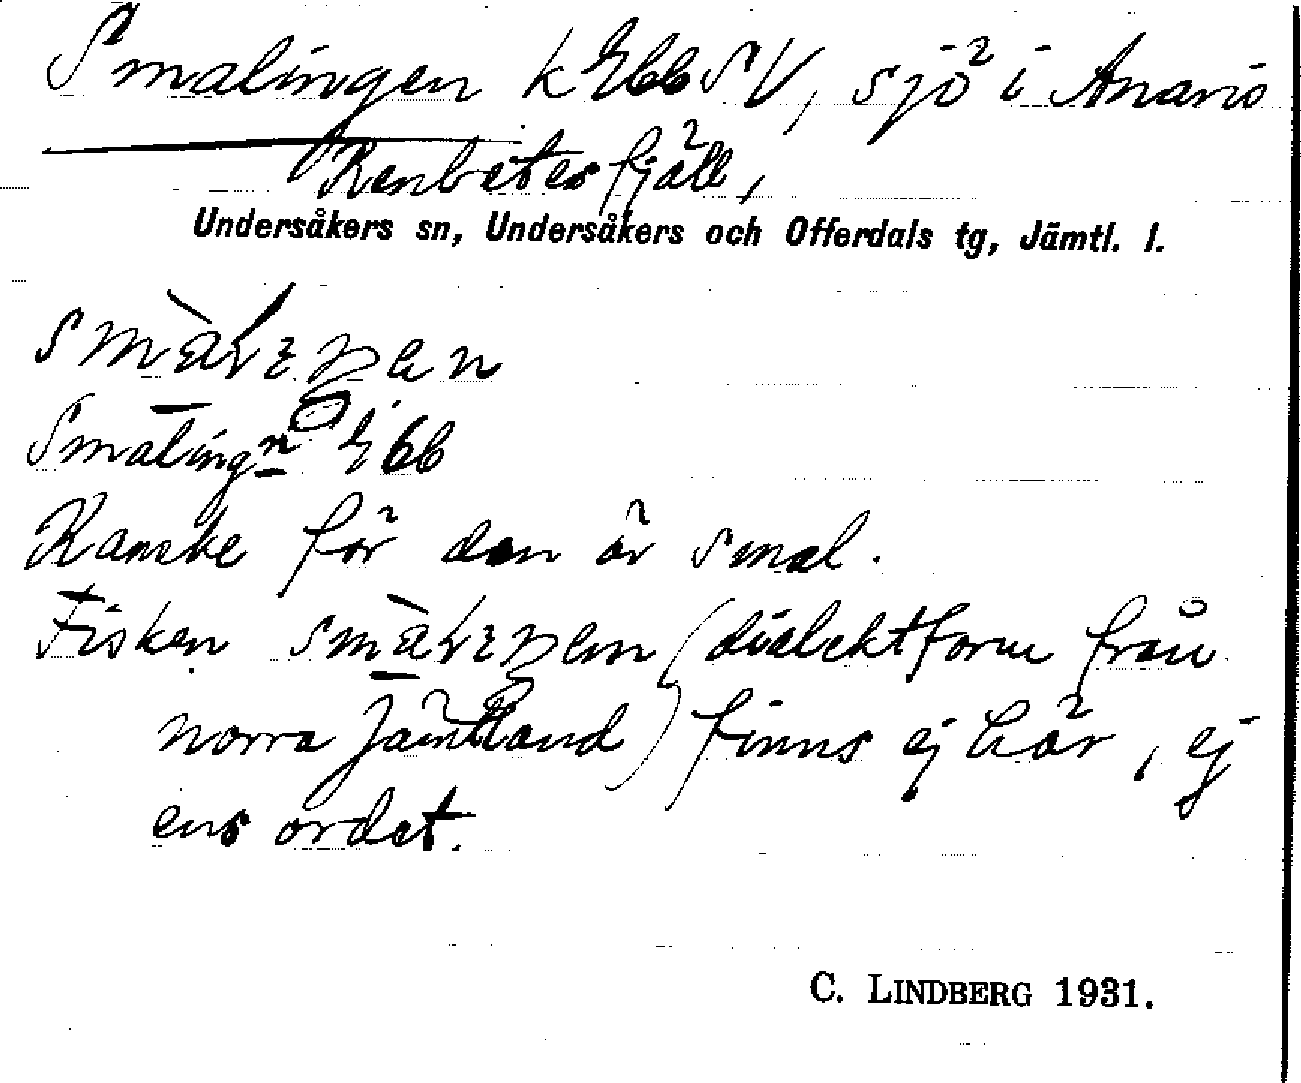 Smalingen k Ebb SV, sjö i Anaris
Renbetesfjäll,
Undersåkers sn, Undersåkers och Offerdals tg, Jämtl. l.
Smalingn Ebb
Kanske för den är smal.
Fisken (dialektform från
norra Jämtland) finns ej här, ej
ens ordet.
C. LINDBERG 1931.